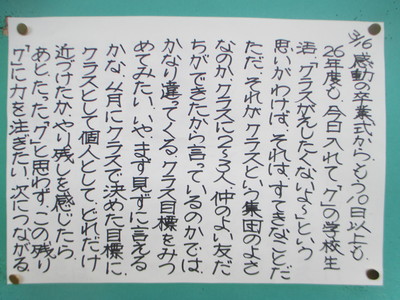 感動の卒業式から、もう10日以上も、
26年度も、今日入れて「9」の学校生
活、「クラスがえしたくないよ〜」という
思いがわけば、それは、すてきなことだ。
ただ、それがクラスという集団のよさ
なのか、クラスに2〜3人、仲のよい友だ
ちができたから言っているのかでは、
かなり違ってくる。クラス目標をみつ
めてみたい。いや、まず見ずに言える
かな。4月にクラスで決めた目標に
クラスとして個人として、どれだけ
近づけたか、やり残しを感じたら、
あとたった「9」と思わず、この残り
「9」に力を注ぎたい。次につながる